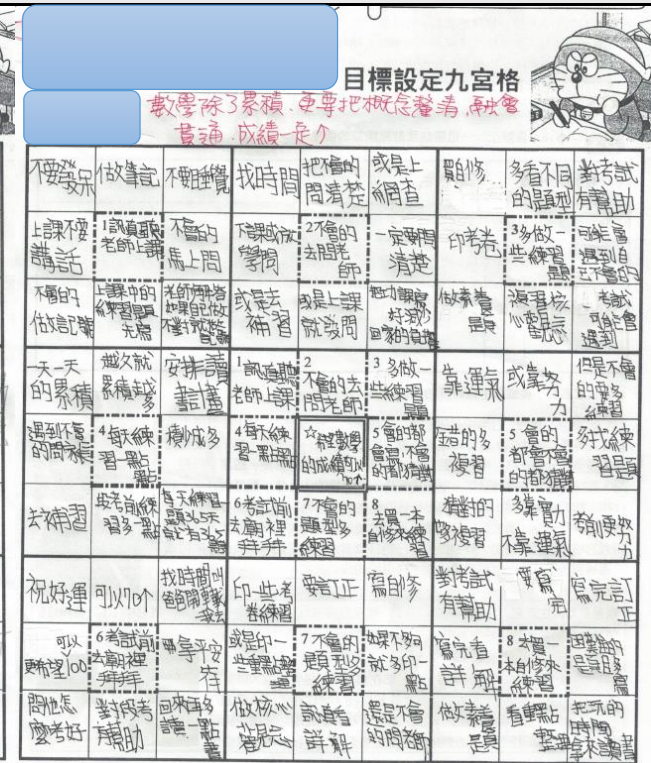 目標設定九宮格
數學除了累積.更要把概念釐清,融會
貫通.成績一定个
不要發呆 做筆記 不要睡覺 找時間 把不會的問清楚 或是上網查 買自修 多看不同的題型 對考試有幫助
上課不要講話 1認真聽老師上課 不會的馬上問 下課或放學問 2不會的去問老師 一定要問清楚 印考卷 3多做一些練習題 可能會遇到自己不會的
不會的做記號 上課中的練習題 或是去補習 或是上課就發問 做素養題 考試可能會遇到
一天一天的累積 越久就累積越多 安排讀書計畫 1認真聽老師上課 2不會的去問老師 3多做一些練習題 靠運氣 或靠努力 但是不會的要多練習
遇到不會的問家長 4每天練習一點點 積少成多 4每天練習一點點 ☆希望數學的成績可以 5會的都會寫,不會的都猜對 錯的多複習 5會的都會不會的都猜對 多找練習題
去補習 段考前練習多一點 每天練習 6考試前去廟裡拜拜 7不會的題型多練習 8去買一本自修來練習 猜對的多複習 多靠實力不靠運氣 考前更努力
祝好運 可以 找時間叫爸爸開車載我去 印一些考卷練習 要訂正 寫自修 對考試有幫助 要寫完 寫完訂正
可以更希望100 6考試前去廟裡拜拜 要拿平安符 或是印一些重點整理 7不會的題型多練習 如果不夠就多印一點 寫完看詳解 8去買一本自修來練習
問他怎麼考好 對段考有幫助 回來再多讀一點書 做核心觀念 認真看詳解 還是不會的問老師 做素養題 看重點整理 把玩的時間拿來讀書